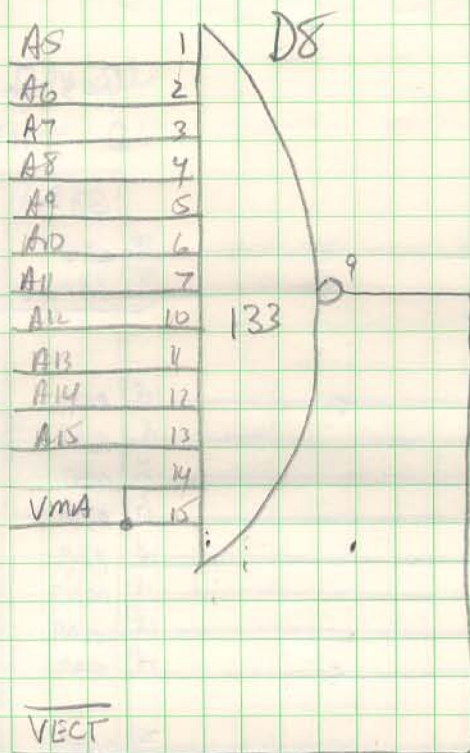 D8
A5 1
A6 2
A7 3
A8 4
A9 5
A10 6
A11 7
9
A12 10
133
A13 11
A14 12
A15 13
14
VMA 15
VECT